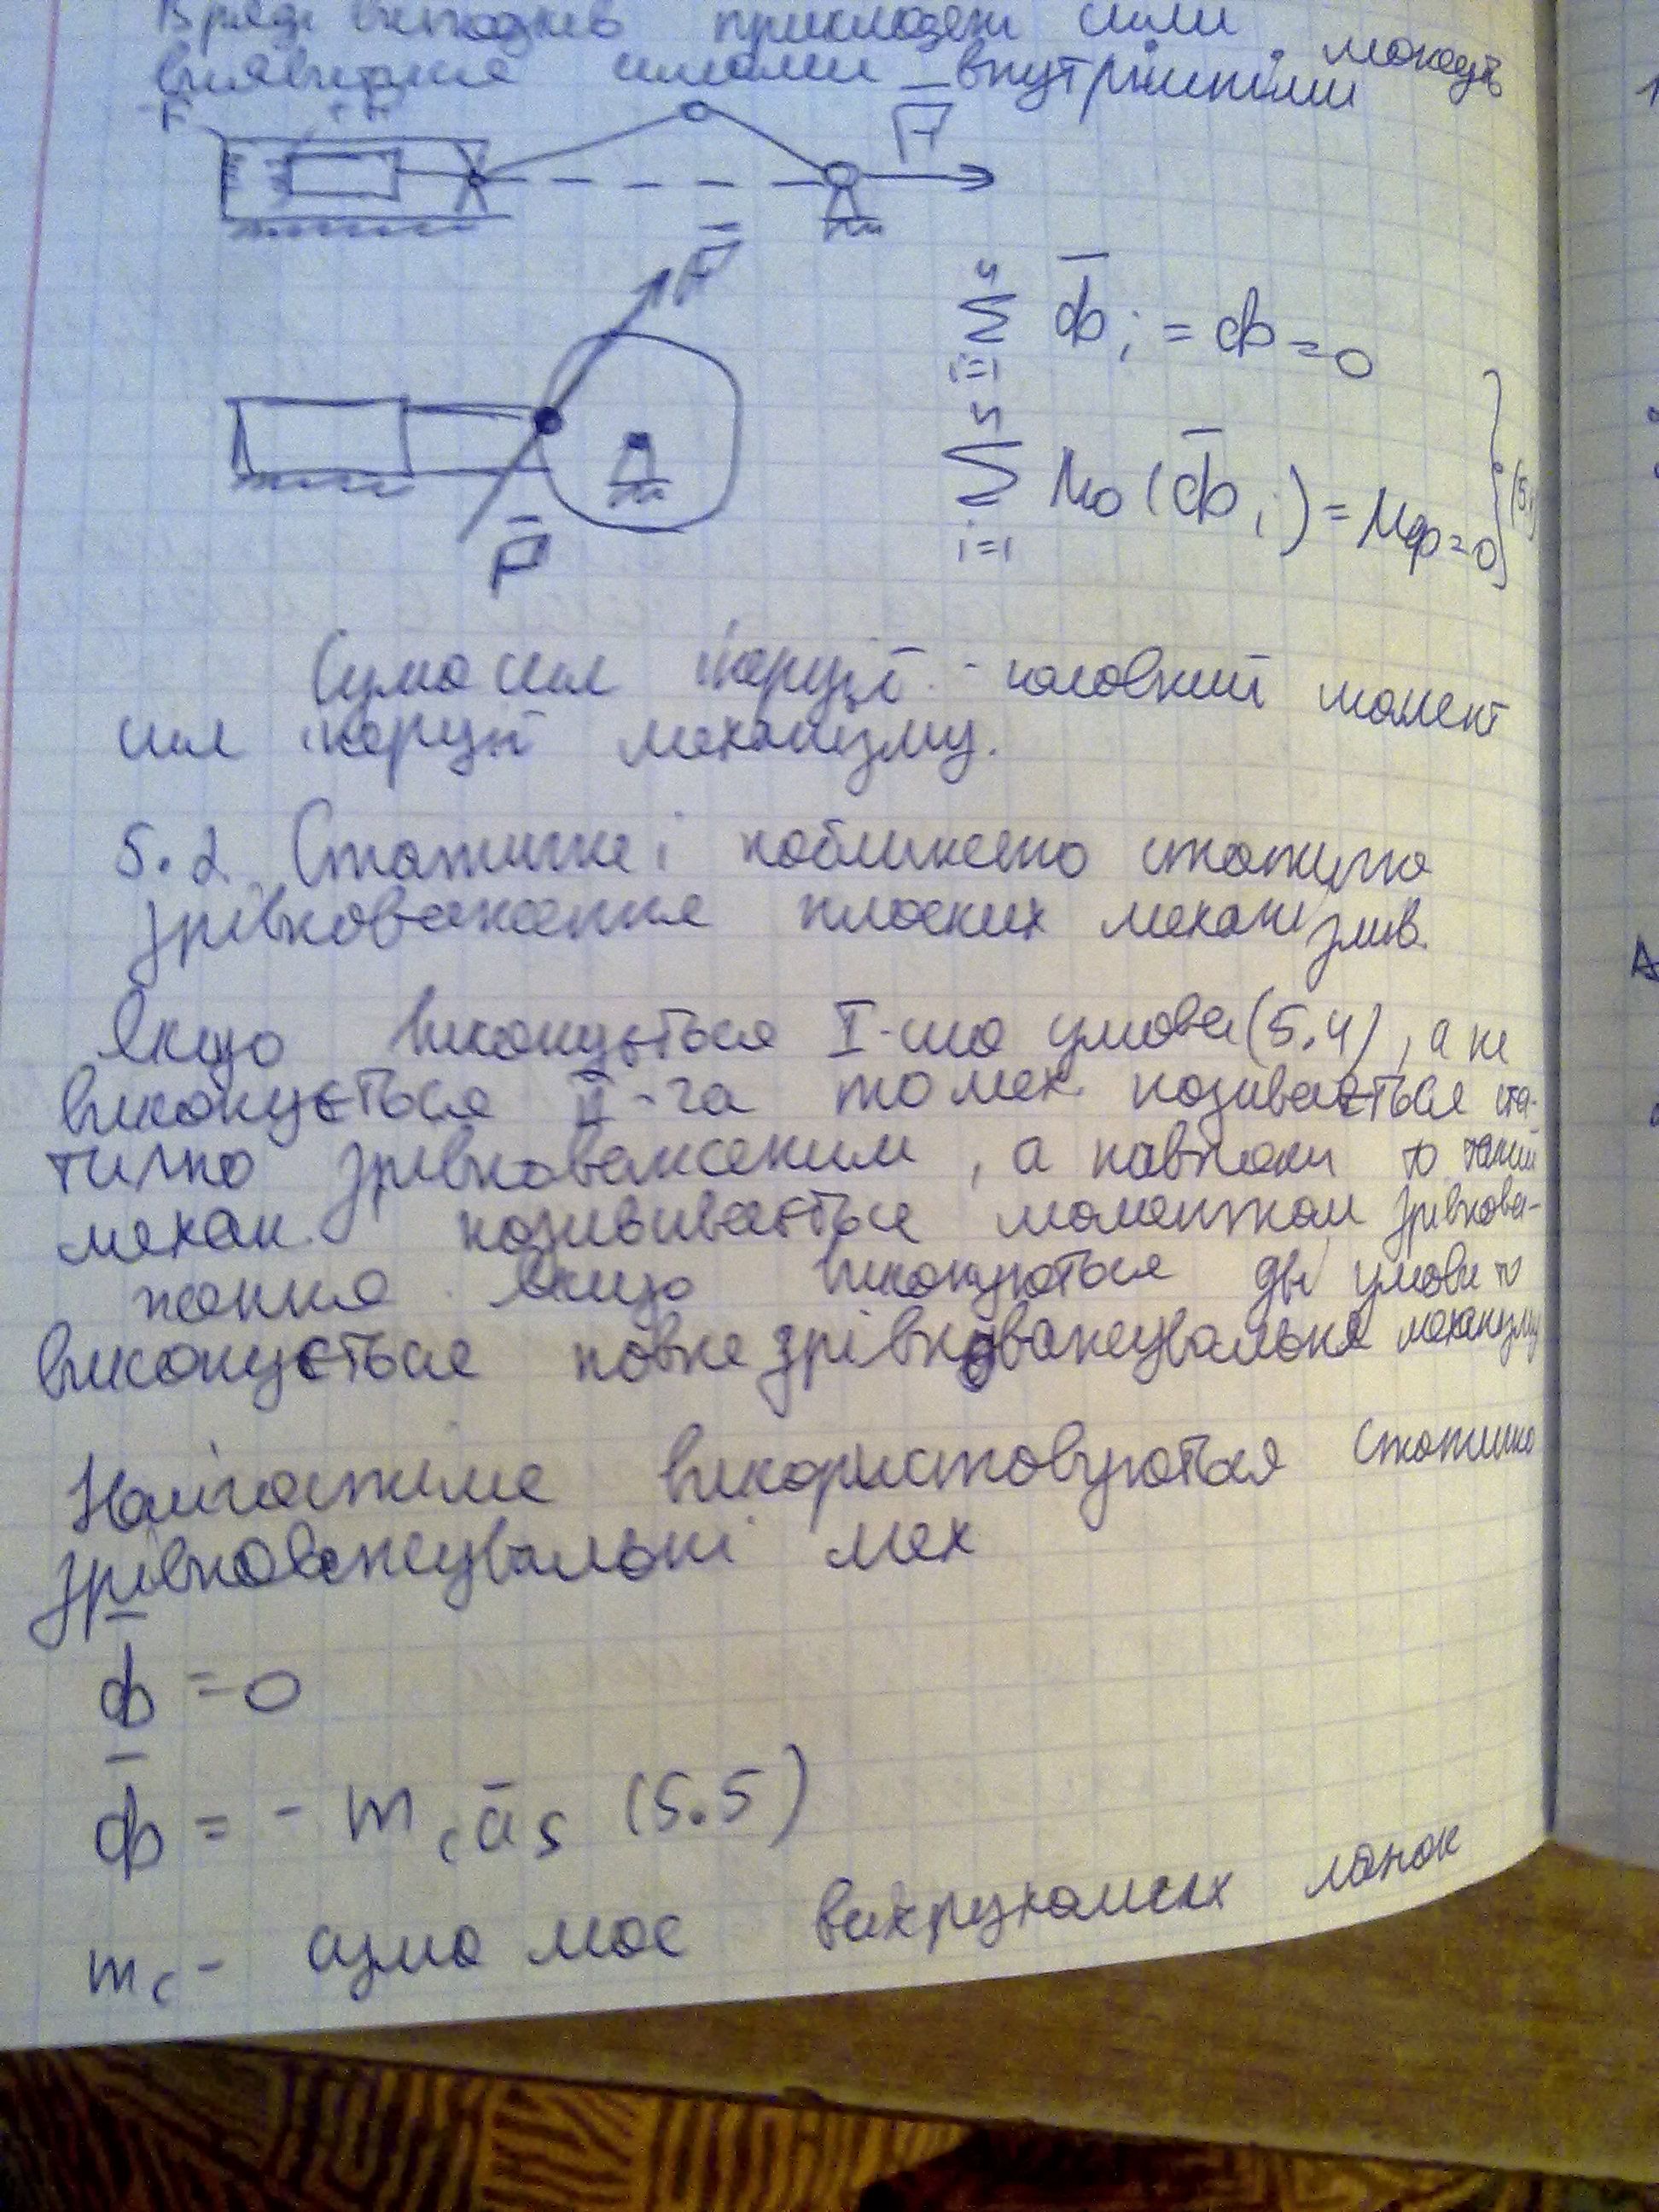 В ряді випадків прикладені сили можуть
виявитися силами внутрішніми
F
F
F
F
P
n
∑ Ф̄i = Ф = 0
i=1
n
∑ Mo (Ф̄i) = MФ = 0
i=1
Сума сил інерції - головний момент
сил інерції механізму.
5.2 Статичне і наближено статичне
зрівноваження плоских механізмів.
Якщо виконується I-ша умова (5.4), а не
виконується II-га то мех. називається ста-
тично зрівноваженим, а навпаки то такий
механ. назививається моментном зрівнова-
ження. Якщо виконуються дві умови то
виконується повне зрівноважувальня механізму
Найчастіше використовуються статично
зрівноважувальні мех
Ф̄ = 0
Ф̄ = - mc ās (5.5)
mc - сума мас всіх рухомих ланок